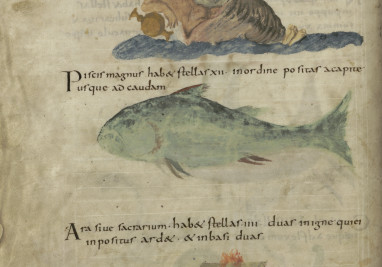 Piscis magnus hab& stellas xii · inordine positas acapite
usque ad caudam
Ara sive sacrarium · hab& stellas iiii · duas inigne quiei
inpositus ard& · & inbasi duas